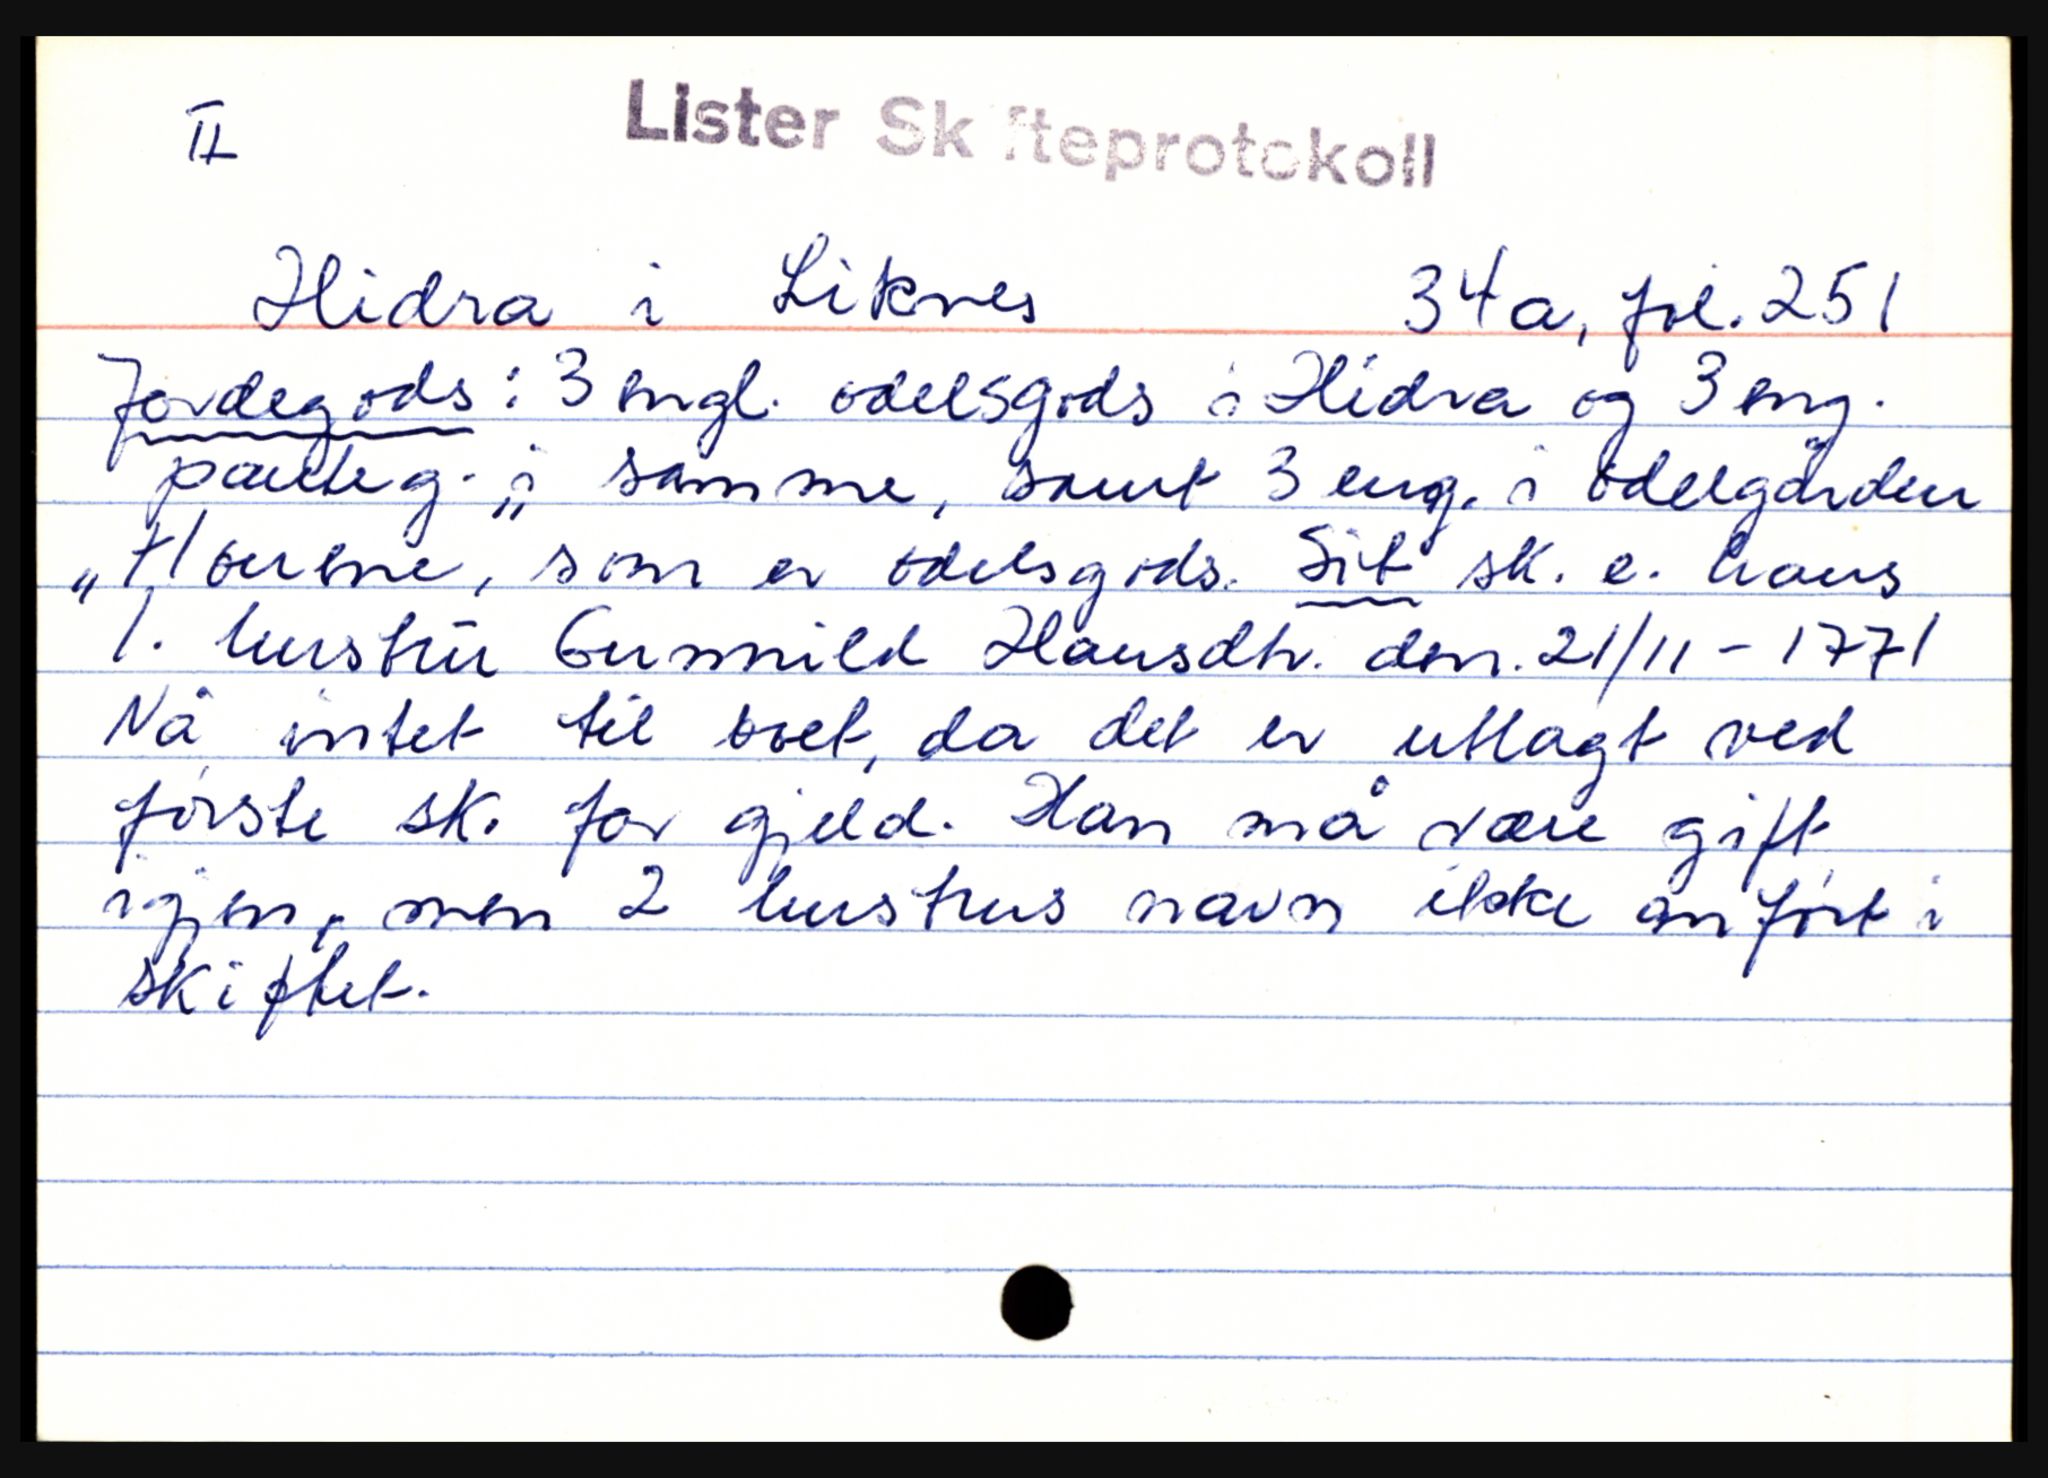 II
Lister Skifteprotokoll
Hidra i Liknes 34a, fol. 251
Jordegods: 3 engl. odelsgods i Hidra og 3 eng.
panteg. i samme, samt 3 eng. i ödelgården
som er odelsgods. Sit sk. e. hans
1. hustru Gunnild Hansdtr. den. 21/11-1771
Nå intet til boet, da det er utlagt ved
förste sk. for gjeld. Han må være gift
igjen, men 2 hustrus navn ikke anfört i
skiftet.